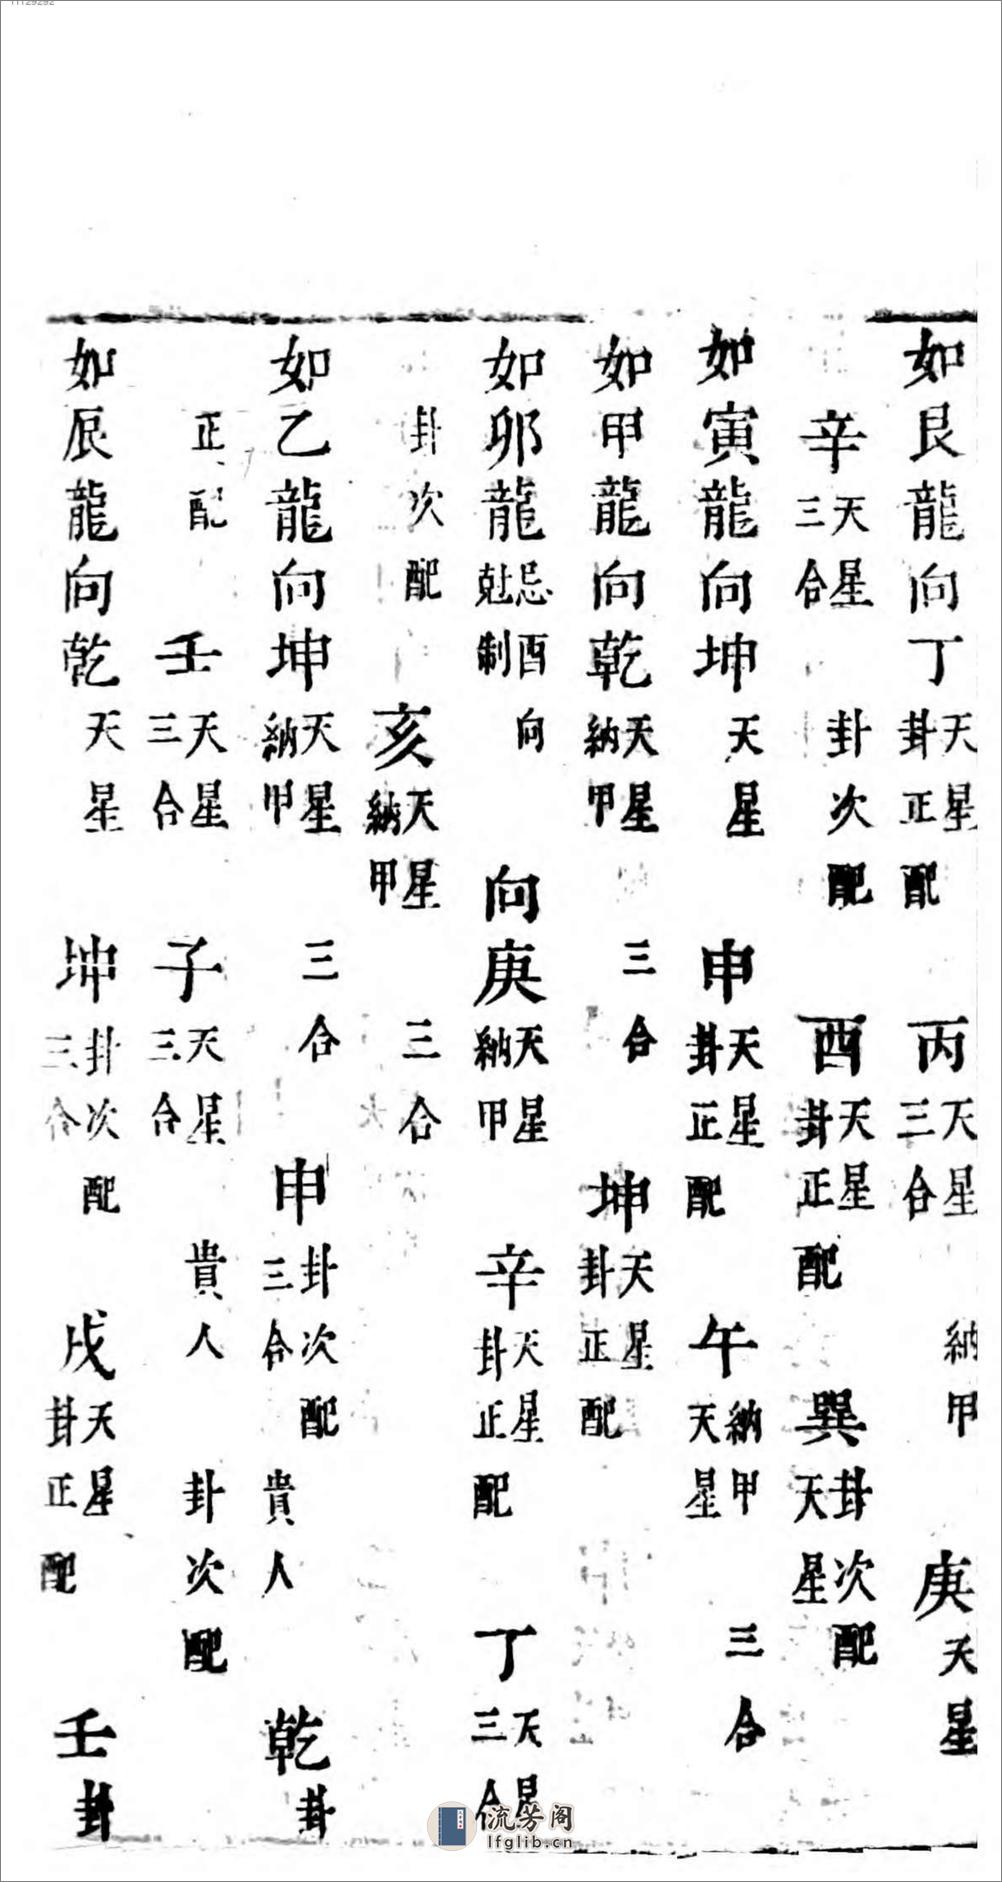 如艮龍向丁天星卦正配 丙天星三合 納甲 庚天星
辛天星三合 卦次配 酉天星卦正配 巽卦次配天星
如寅龍向坤天星 申天星卦正配 午納甲天星 三合
如甲龍向乾天星納甲 三合 坤天星卦正配
如卯龍忌酉向尅制 向庚天星納甲 辛天星卦正配 丁天星三合
卦次配 亥天星納甲 三合
如乙龍向坤天星納甲 三合 申卦次配三合 貴人 乾卦
正配 壬天星三合 子天星三合 貴人 卦次配
如辰龍向乾天星 坤卦次配三合 戌天星卦正配 壬卦
流芳阁
lfglib.cn